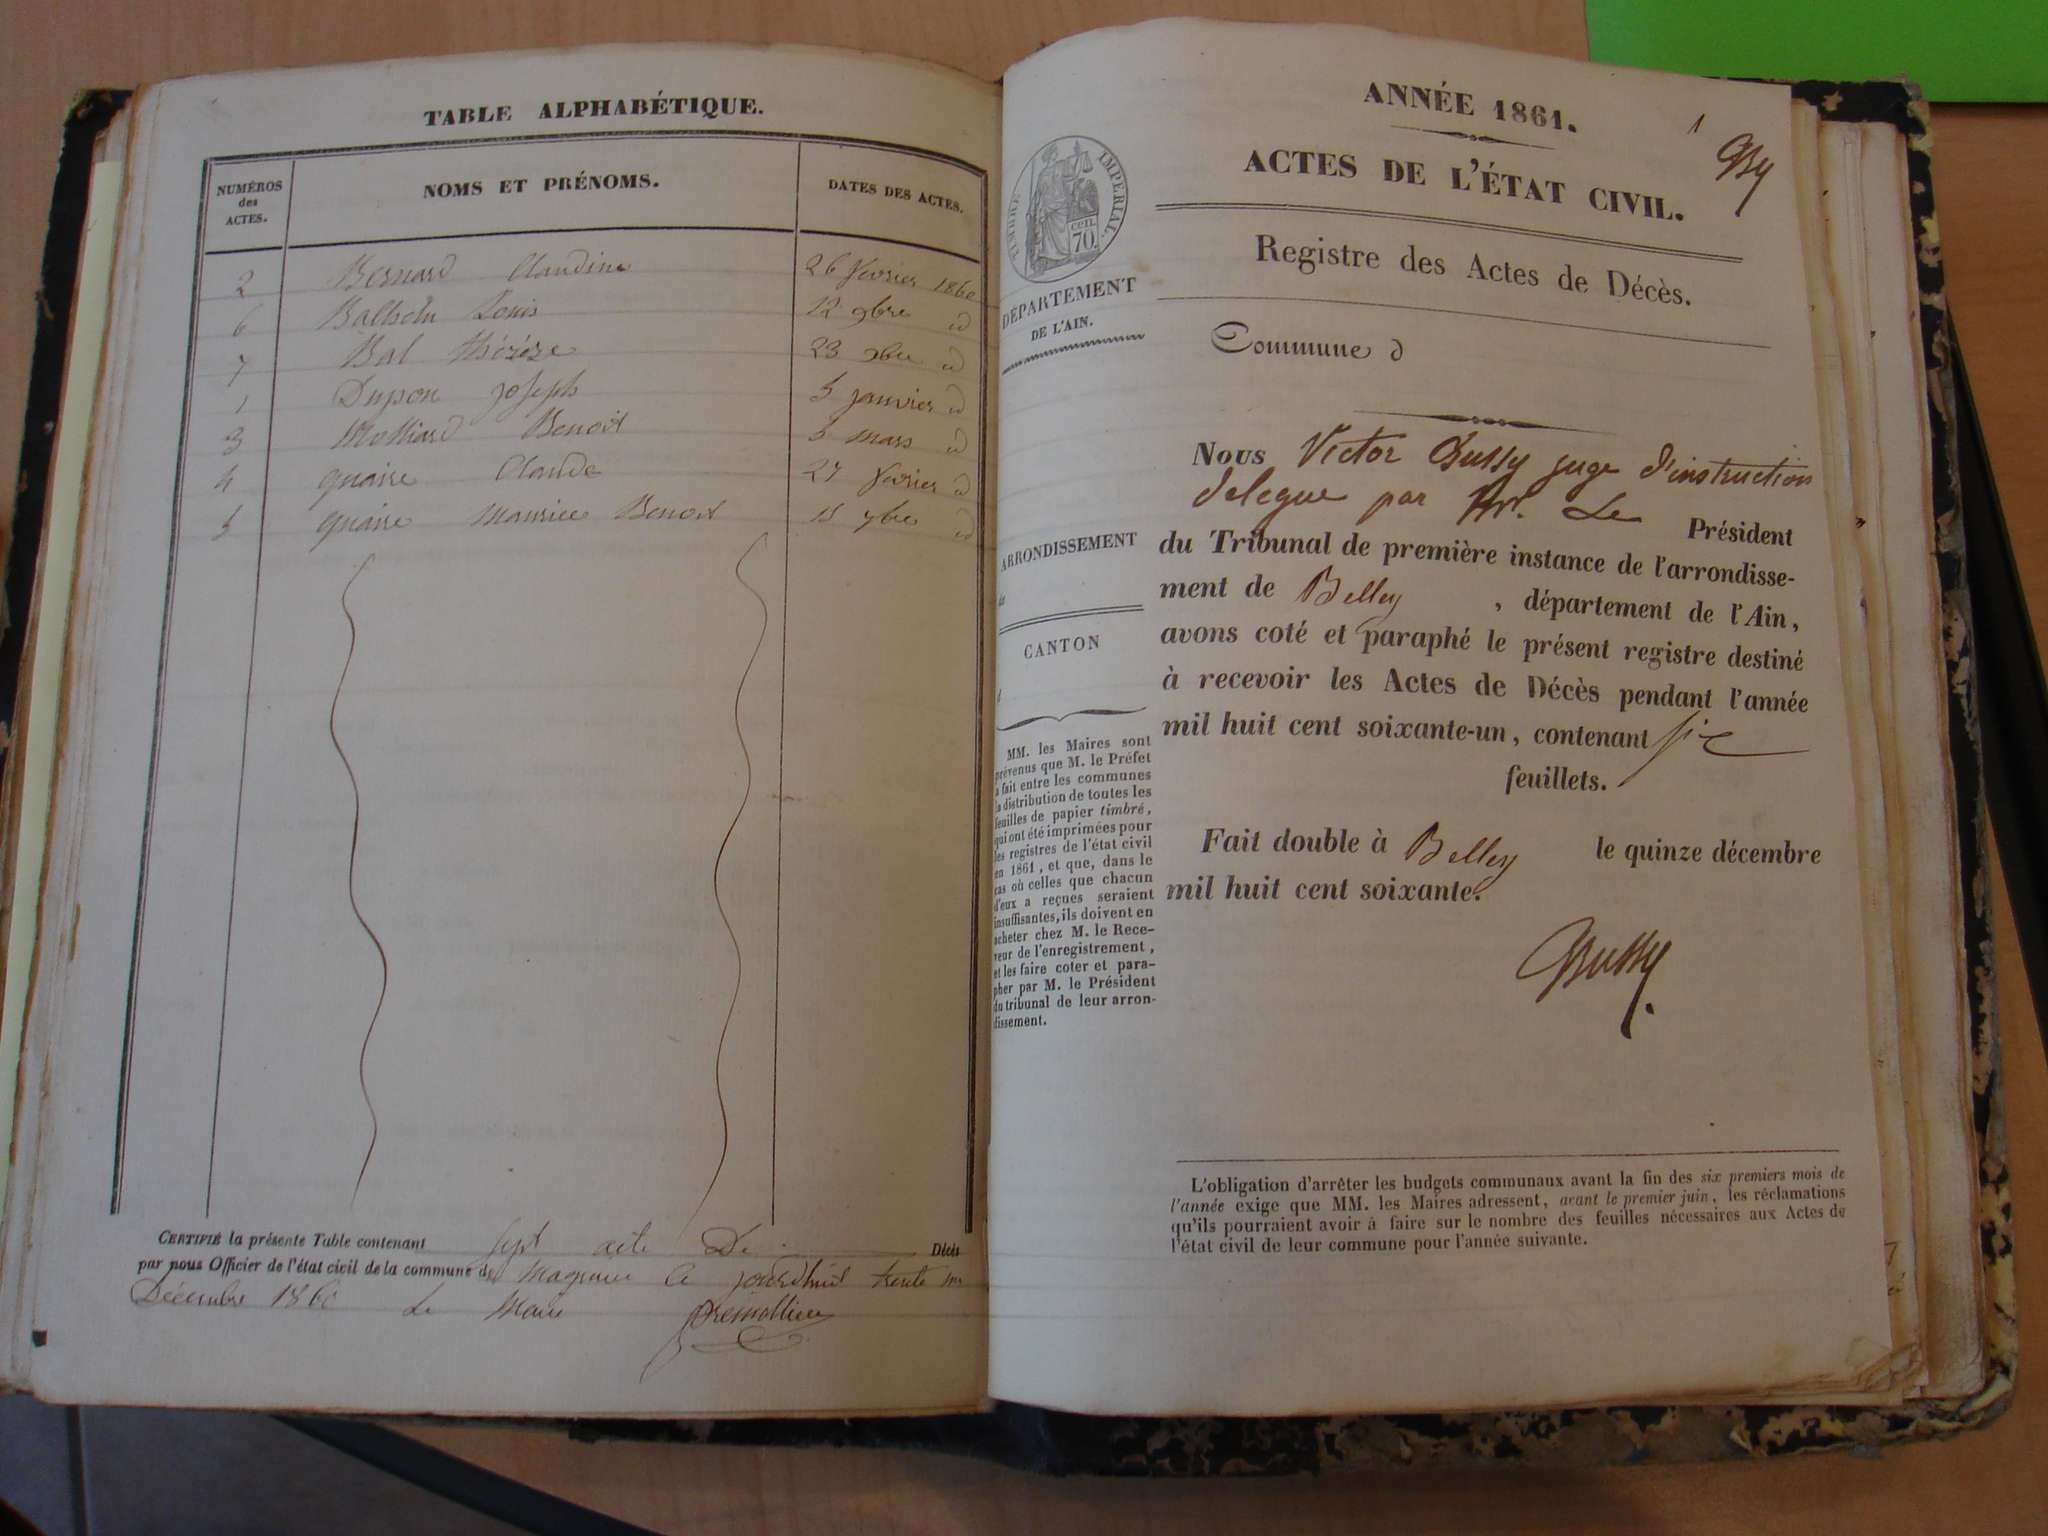 TABLE ALPHABÉTIQUE.
NUMÉROS
des
ACTES.
NOMS ET PRÉNOMS.
DATES DES ACTES.
2 Bernard Claudine 26 février 1860
6 Louis 12 9bre id
7 Bal 23 id
1 Dupon joseph 5 janvier id
3 Molliard Benoit 5 mars id
4 quaire Claude 27 février id
5 quaire Maurice Benoit id
CERTIFIÉ la présente Table contenant sept acte De Décès
par nous Officier de l'état civil de la commune de le jourdhuit trente un
Décembre 1860 Le Maire
ANNÉE 1861.
1
ACTES DE L'ÉTAT CIVIL.
Registre des Actes de Décès.
TIMBRE IMPERIAL.
CEN.
70.
DÉPARTEMENT
DE L'AIN.
Commune d
Nous Victor Bussy juge d'instruction
délégué par Mr. Le Président
du Tribunal de première instance de l'arrondisse-
ment de Belley , département de l'Ain,
avons coté et paraphé le présent registre destiné
à recevoir les Actes de Décès pendant l'année
mil huit cent soixante-un, contenant six
feuillets.
Fait double à Belley le quinze décembre
mil huit cent soixante.
Bussy
ARRONDISSEMENT
CANTON
d
MM. les Maires sont
prévenus que M. le Préfet
a fait entre les communes
la distribution de toutes les
feuilles de papier timbré,
qui ont été imprimées pour
les registres de l'état civil
en 1861, et que, dans le
cas où celles que chacun
d'eux a reçues seraient
insuffisantes, ils doivent en
acheter chez M. le Rece-
veur de l'enregistrement,
et les faire coter et para-
pher par M. le Président
du tribunal de leur arron-
dissement.
L'obligation d'arrêter les budgets communaux avant la fin des six premiers mois de
l'année exige que MM. les Maires adressent, avant le premier juin, les réclamations
qu'ils pourraient avoir à faire sur le nombre des feuilles nécessaires aux Actes de
l'état civil de leur commune pour l'année suivante.